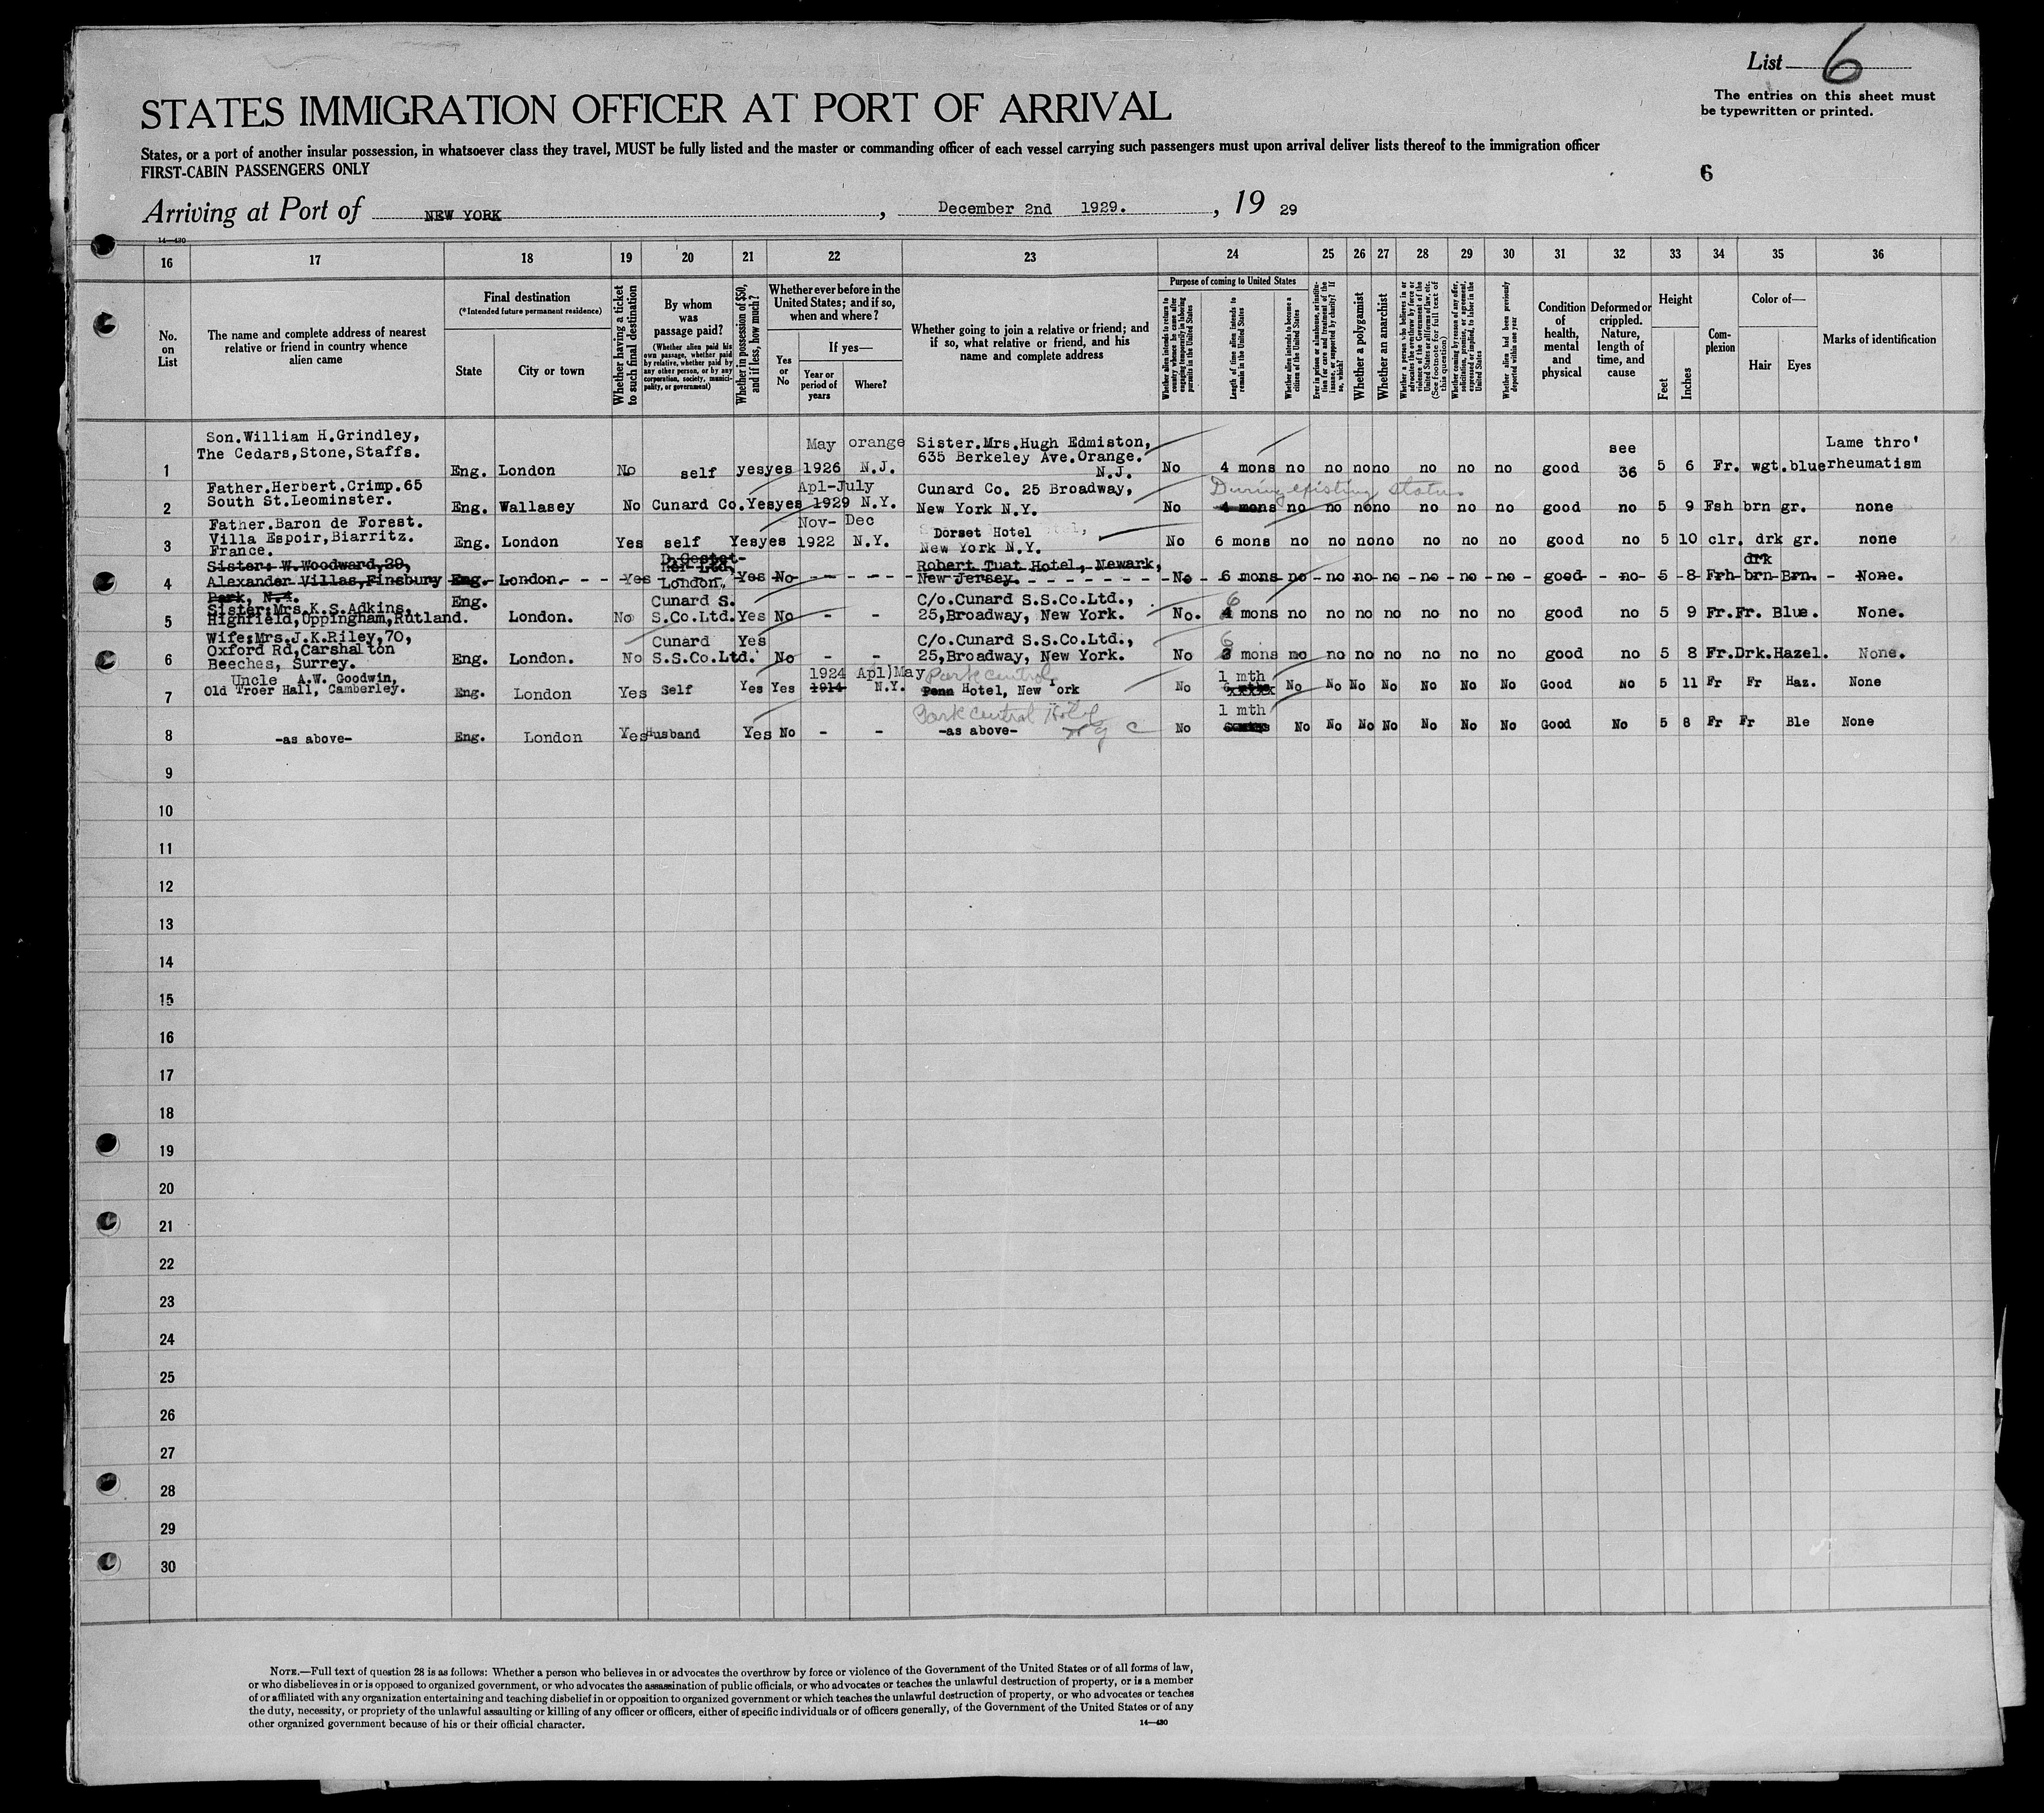 List 6
The entries on this sheet must
be typewritten or printed.
STATES IMMIGRATION OFFICER AT PORT OF ARRIVAL
States, or a port of another insular possession, in whatsoever class they travel, MUST be fully listed and the master or commanding officer of each vessel carrying such passengers must upon arrival deliver lists thereof to the immigration officer
FIRST-CABIN PASSENGERS ONLY
6
Arriving at Port of NEW YORK, December 2nd 1929., 19 29
14—430
16 17 18 19 20 21 22 23 24 25 26 27 28 29 30 31 32 33 34 35 36
No. on List
The name and complete address of nearest relative or friend in country whence alien came
Final destination
(*Intended future permanent residence)
State
City or town
Whether having a ticket to such final destination
By whom was passage paid?
(Whether alien paid his own passage, whether paid by relative, whether paid by any other person, or by any corporation, society, municipality, or government)
Whether in possession of $50, and if less, how much?
Whether ever before in the United States; and if so, when and where?
Yes or No
If yes—
Year or period of years
Where?
Whether going to join a relative or friend; and if so, what relative or friend, and his name and complete address
Purpose of coming to United States
Whether alien intends to return to country whence he came after engaging temporarily in laboring pursuits in the United States
Length of time alien intends to remain in the United States
Whether alien intends to become a citizen of the United States
Ever in prison or almshouse, or institution for care and treatment of the insane, or supported by charity? If so, which?
Whether a polygamist
Whether an anarchist
Whether a person who believes in or advocates the overthrow by force or violence of the Government of the United States or all forms of law, etc. (See footnote for full text of this question)
Whether coming by reason of any offer, solicitation, promise, or agreement, expressed or implied, to labor in the United States
Whether alien had been previously deported within one year
Condition of health, mental and physical
Deformed or crippled. Nature, length of time, and cause
Height
Feet
Inches
Complexion
Color of—
Hair
Eyes
Marks of identification
1 Son.William H.Grindley, The Cedars,Stone,Staffs. Eng. London No self yes yes May 1926 orange N.J. Sister.Mrs.Hugh Edmiston, 635 Berkeley Ave.Orange. N.J. No 4 mons no no no no no no no good see 36 5 6 Fr. wgt. blue Lame thro' rheumatism
2 Father.Herbert.Crimp.65 South St.Leominster. Eng. Wallasey No Cunard Co. Yes yes Apl-July 1929 N.Y. Cunard Co. 25 Broadway, New York N.Y. No 4 mons During existing status no no no no no no no good no 5 9 Fsh brn gr. none
3 Father.Baron de Forest. Villa Espoir,Biarritz. France. Eng. London Yes self Yes yes Nov- Dec 1922 N.Y. Dorset Hotel New York N.Y. No 6 mons no no no no no no no good no 5 10 clr. drk gr. none
4 Sister: W.Woodward,29, Alexander Villas,Finsbury Park, N.4. Eng. London. Yes London. Yes No - - Robert Tuat Hotel, Newark, New Jersey. No 6 mons no no no no no no no good no 5 8 Frh brn drk Brn. None.
5 Sister:Mrs.K.S.Adkins, Highfield,Uppingham,Rutland. Eng. London. No Cunard S. S.Co.Ltd. Yes No - - C/o.Cunard S.S.Co.Ltd., 25,Broadway, New York. No. 4 6 mons no no no no no no no good no 5 9 Fr. Fr. Blue. None.
6 Wife:Mrs.J.K.Riley,70, Oxford Rd,Carshalton Beeches, Surrey. Eng. London. No Cunard S.S.Co.Ltd. Yes No - - C/o.Cunard S.S.Co.Ltd., 25,Broadway, New York. No 6 mons no no no no no no no good no 5 8 Fr. Drk. Hazel. None.
7 Uncle A.W. Goodwin, Old Troer Hall, Camberley. Eng. London Yes Self Yes Yes 1924 1914 Apl)May N.Y. Park Central Penn Hotel, New York No 1 mth No No No No No No No Good No 5 11 Fr Fr Haz. None
8 -as above- Eng. London Yes Husband Yes No - - Park Central Hotel -as above- N Y C No 1 mth No No No No No No No Good No 5 8 Fr Fr Ble None
9
10
11
12
13
14
15
16
17
18
19
20
21
22
23
24
25
26
27
28
29
30
NOTE.—Full text of question 28 is as follows: Whether a person who believes in or advocates the overthrow by force or violence of the Government of the United States or of all forms of law,
or who disbelieves in or is opposed to organized government, or who advocates the assassination of public officials, or who advocates or teaches the unlawful destruction of property, or is a member
of or affiliated with any organization entertaining and teaching disbelief in or opposition to organized government or which teaches the unlawful destruction of property, or who advocates or teaches
the duty, necessity, or propriety of the unlawful assaulting or killing of any officer or officers, either of specific individuals or of officers generally, of the Government of the United States or of any
other organized government because of his or their official character.
14—430